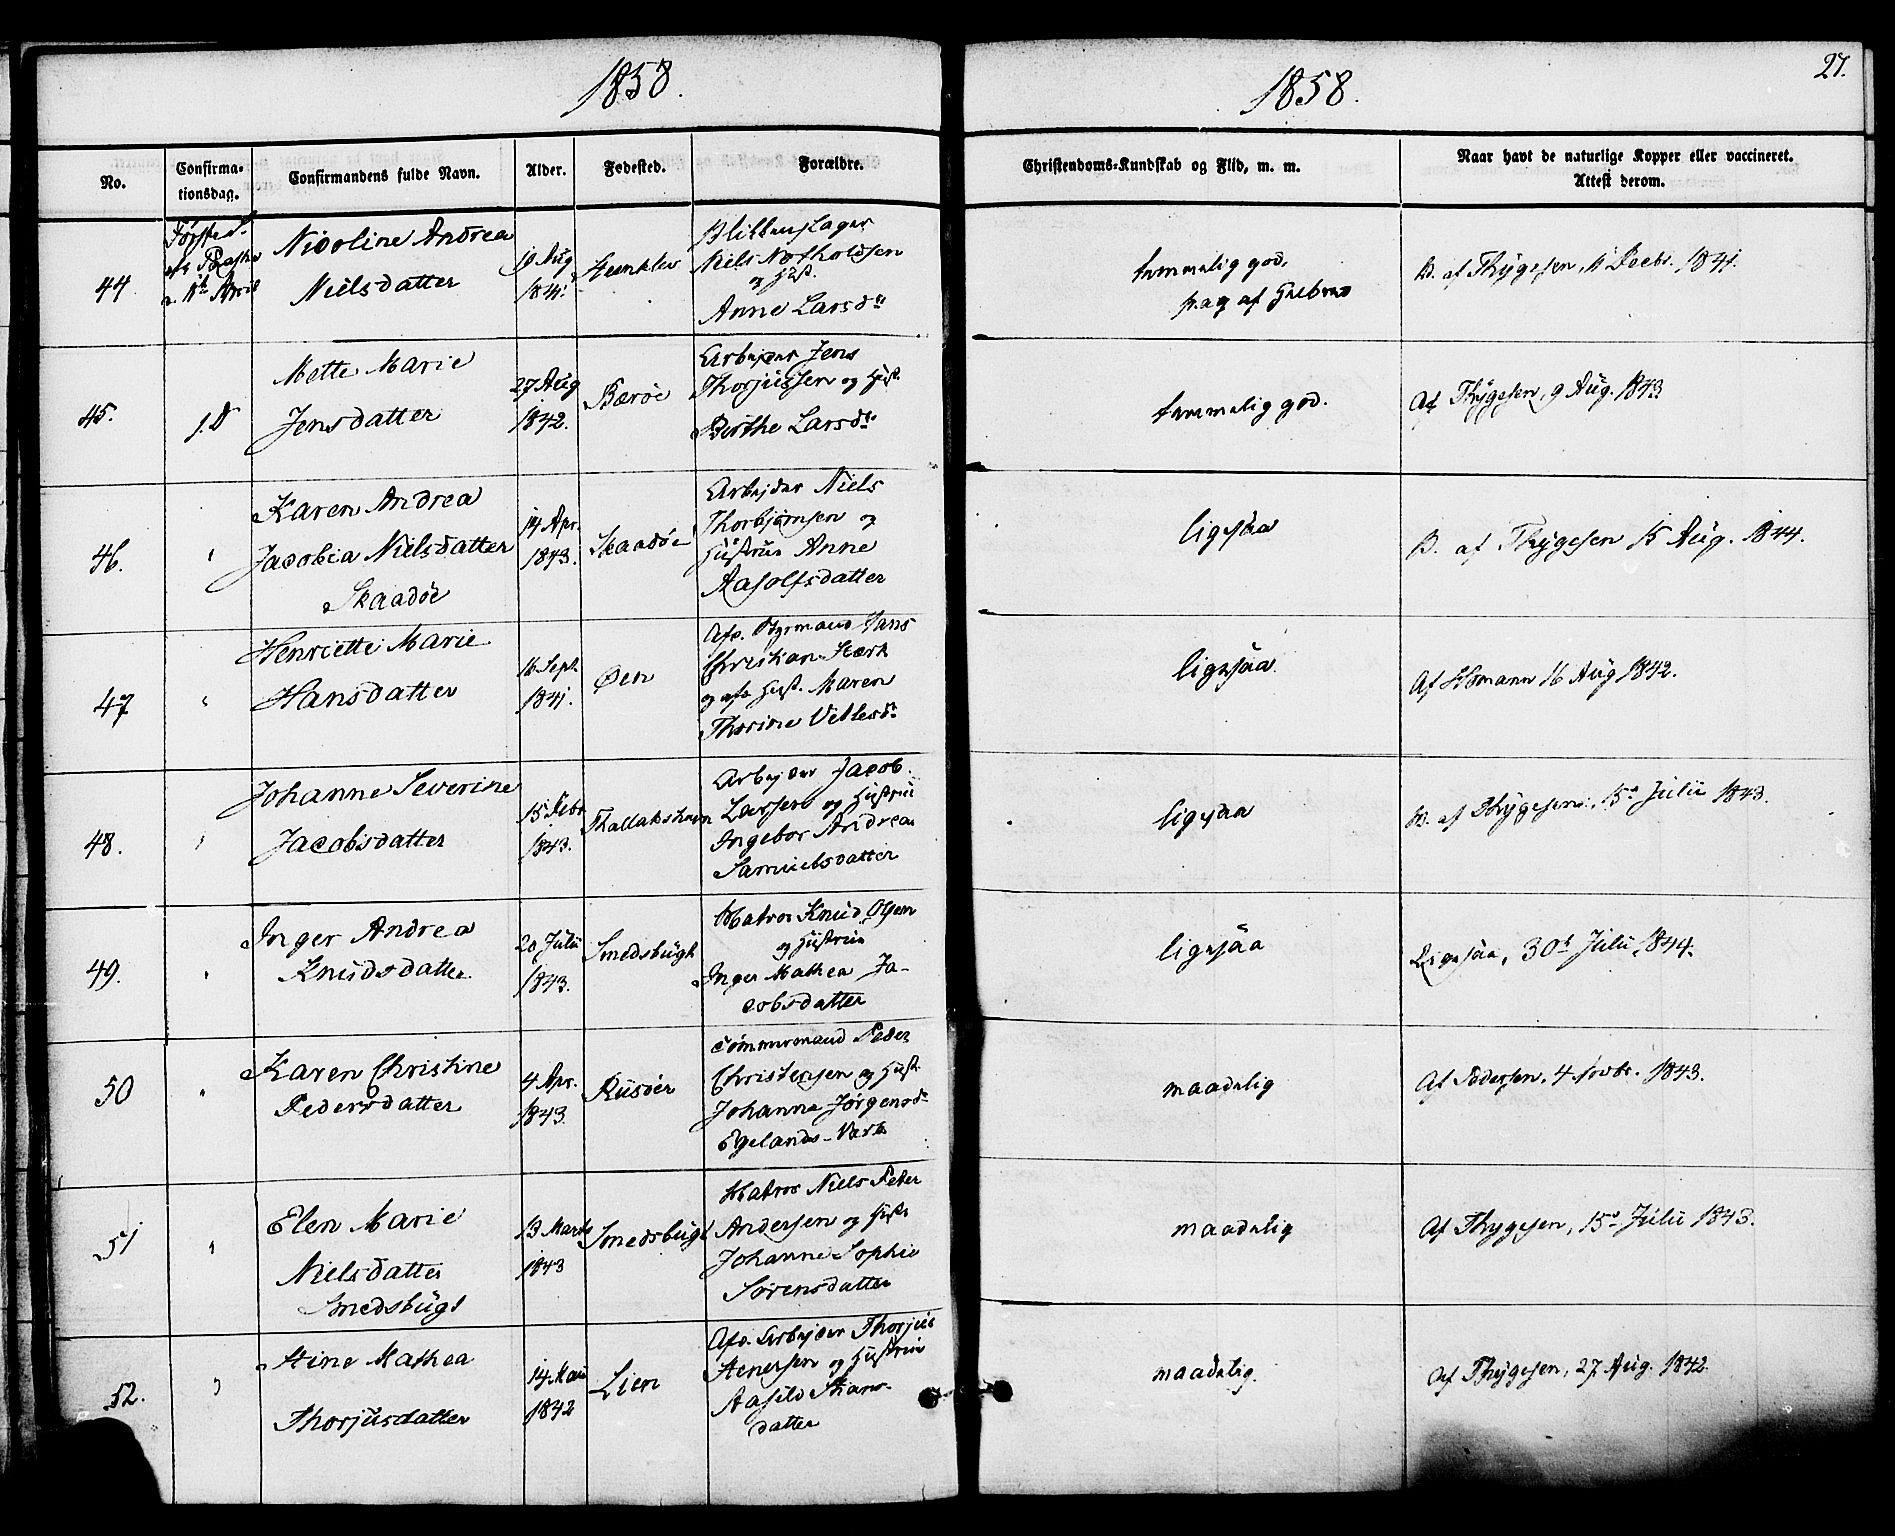 1858.
1858.
27.
No.
Confirma-
tionsdag.
Confirmandens fulde Navn.
Alder.
Fødested.
Forældre.
Christendoms-Kundskab og Flid, m. m.
Naar havt de naturlige Kopper eller vaccineret.
Attest derom.
44
Første S.
eft. Paaske
April
Nicoline Andrea
Nielsdatter
10 Aug
1841.
Blikkenslager
Niels
og Hust.
Anne Larsdr
temmelig god,
B. af Thygesen, 11 Decbr. 1841.
45.
s. D
Mette Marie
Jensdatter
27 Aug
1842.
Barøe
Arbejder Jens
Thorjussen og Hust.
Birthe Larsdr
temmelig god.
Af Thygesen, 9 Aug. 1843.
46.
"
Karen Andrea
Jacobea Nielsdatter
Skaadøe
14 Apr.
1843.
Skaadøe
Arbejder Niels
Thorbjørnsen og
Hustrue Anne
Aasolfsdatter
ligesaa
B. af Thygesen 15 Aug. 1844.
47
"
Henriette Marie
Hansdatter
16 Sept.
1841.
Øen
Afd. Styrmand Hans
Christian Stærk
og afd. Hust. Maren
Thorine Vetlesdr
ligesaa
Af Homann 16 Aug 1842.
48.
"
Johanne Severine
Jacobsdatter
15 Febr
1843.
Thallakshavn
Arbejder Jacob
Larsen og Hustrue
Ingebor Andrea
Samuelsdatter
ligesaa
B. af Thygesen, 15de Julii 1843.
49.
"
Inger Andrea
Knudsdatter
20 Julii
1843.
Smedsbugt
Matros Knud Olsen
og Hustrue
Inger Mathea Ja-
cobsdatter
ligesaa
Ligesaa, 30te Julii 1844.
50
"
Karen Christine
Pedersdatter
4 Apr.
1843.
Riisøer
Tømmermand Peder
Christensen og Hust.
Johanne Jørgensdr
Egelands-Værk
maadelig
Af Pedersen, 4 Novbr. 1843.
51
"
Elen Marie
Nielsdatter
Smedsbugt
13 Marts
1843
Smedsbugt
Matros Niels Peter
Andersen og Hust.
Johanne Sophie
Sørensdatter
maadelig
Af Thygesen, 15de Julii 1843.
52.
"
Stine Mathea
Thorjusdatter
14 Mai
1842
Lien
Afd. Arbejder Thorjus
Stenersen og Hustrue
Aasild
datter
maadelig.
Af Thygesen, 27 Aug. 1842.